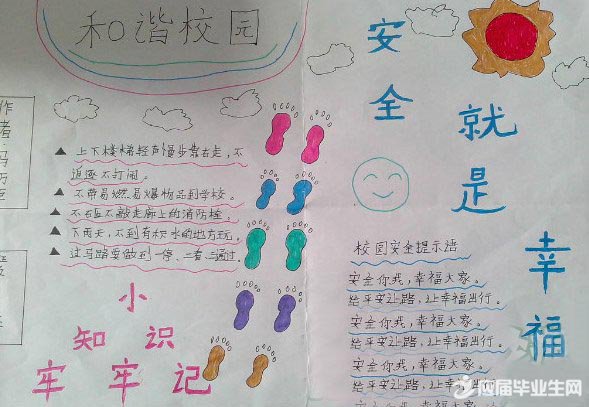 和谐校园
作
者
冯
万
▲ 上下楼梯轻声慢步靠右走，不
追逐不打闹。
▲ 不带易燃易爆物品到学校。
▲ 不不敲走廊上的消防栓。
▲ 下雨天，不到有积水的地方玩。
▲ 过马路要做到一停、二看、三通过。
小
知识
牢牢记
安全
就是
幸福
校园安全提示语
安全你我，幸福大家。
给平安让路，让幸福出行。
安全你我，幸福大家。
给平安让路，让幸福出行。
安全你我，幸福大家。
给平安让路，让幸福出行。
安全你我，幸福大家。
应届毕业生网